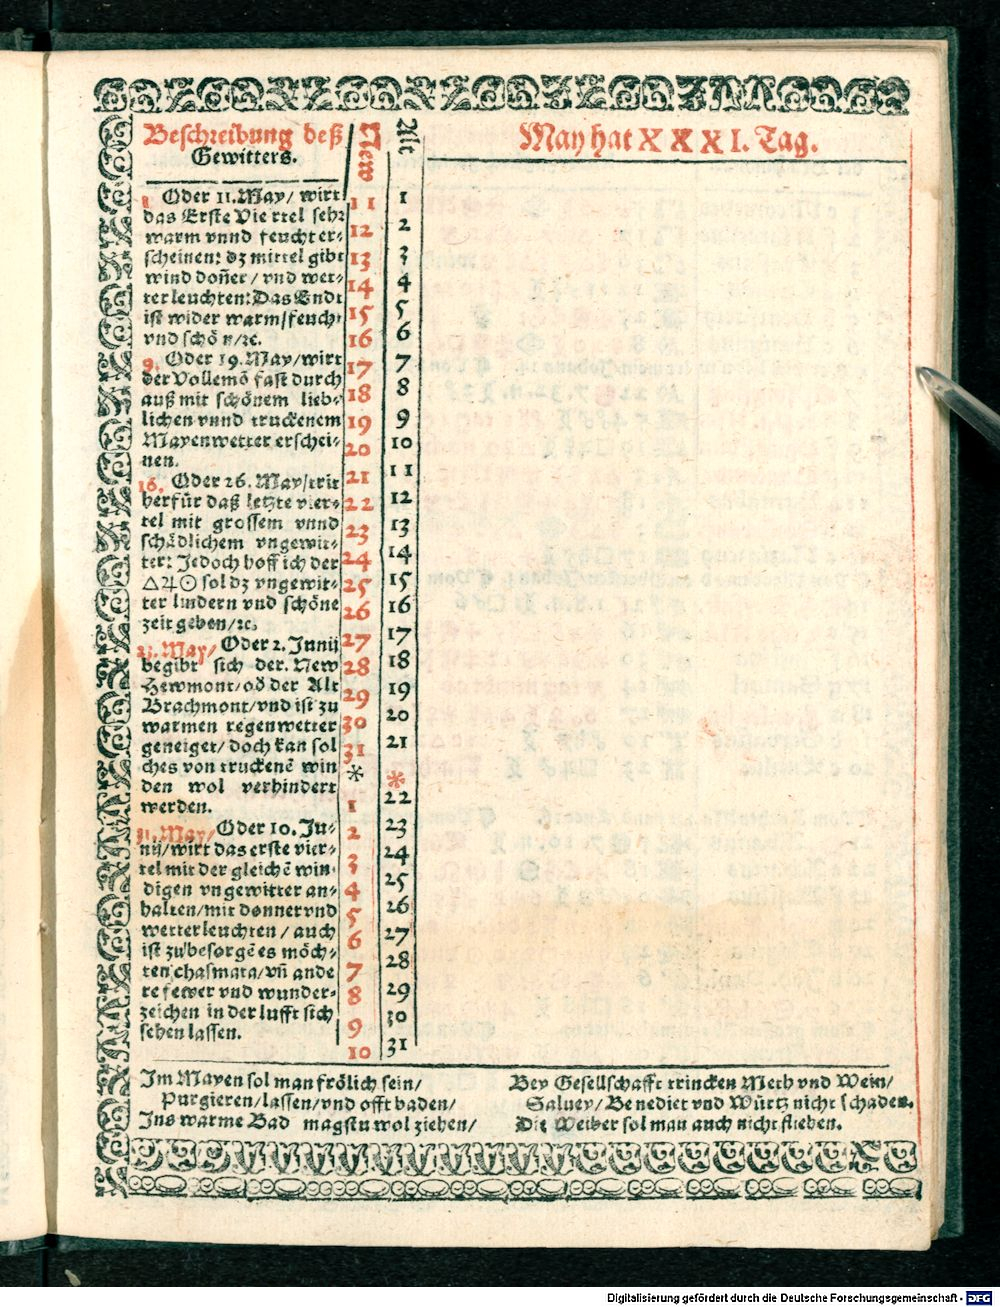 Beschreibung deß
Gewitters.
New
Alt
May hat XXXI. Tag.
8. Oder 11. May/ wirt
das Erste Viertel sehr
warm vnnd feucht er-
scheinen: dz mittel gibt
wind doñer/ vnd wet-
terleuchten: Das Endt
ist wider warm/feucht
vnd schön/ꝛc.
9. Oder 19. May/wirt
der Vollemõ fast durch
auß mit schönem lieb-
lichen vnnd truckenem
Mayenwetter erschei-
nen.
16. Oder 26. May/trit
herfür daß letzte vier-
tel mit grossem vnnd
schädlichem vngewit-
ter: Jedoch hoff ich der
△♃☉ sol dz vngewit-
ter lindern vnd schöne
zeit geben/ꝛc.
23. May/ Oder 2. Junij
begibt sich der New
Hewmont/oď der Alt
Brachmont/vnd ist zu
warmen regenwetter
geneiget/doch kan sol
ches von truckenẽ win
den wol verhindert
werden.
31. May/ Oder 10. Ju-
nij/wirt das erste vier-
tel mit der gleichẽ win-
digen vngewitter an-
halten/mit donner vnd
wetterleuchten/ auch
ist zu besorgẽ es möch-
ten chasmata/vñ ande
re fewer vnd wunder-
zeichen in der lufft sich
sehen lassen.
11
12
13
14
15
16
17
18
19
20
21
22
23
24
25
26
27
28
29
30
31
*
1
2
3
4
5
6
7
8
9
10
1
2
3
4
5
6
7
8
9
10
11
12
13
14
15
16
17
18
19
20
21
*
22
23
24
25
26
27
28
29
30
31
Im Mayen sol man frölich sein/
Purgieren/lassen/vnd offt baden/
Ins warme Bad magstu wol ziehen/
Bey Gesellschafft trincken Meth vnd Wein/
Saluey/ Benedict vnd Würtz nicht schaden.
Die Weiber sol man auch nicht fliehen.
Digitalisierung gefördert durch die Deutsche Forschungsgemeinschaft - DFG